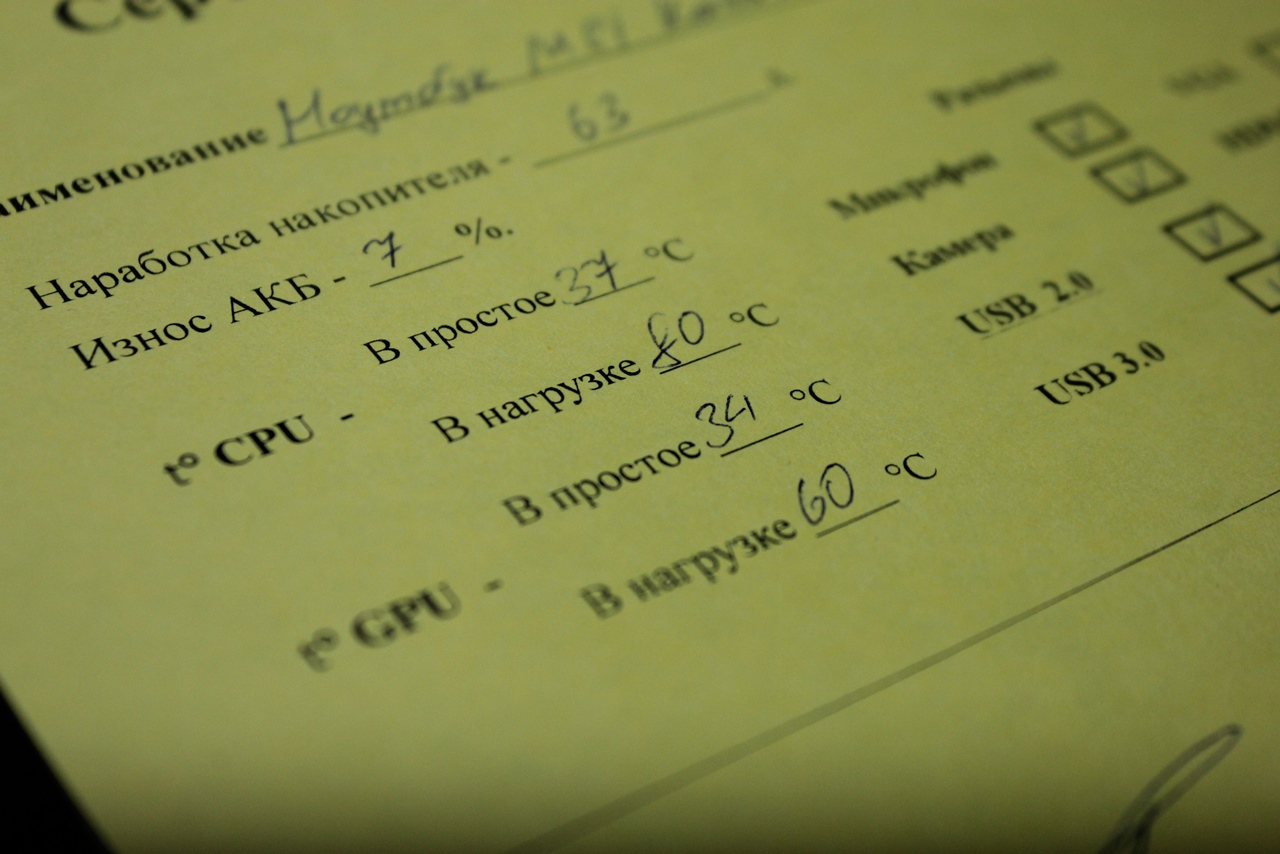 Ноутбук MSI
аименование
Наработка накопителя - 63
Износ АКБ - 7 %.
t° CPU - В простое 37 °C
В нагрузке 80 °C
t° GPU - В простое 34 °C
В нагрузке 60 °C
Разъемы
Микрофон
Камера
USB 2.0
USB 3.0